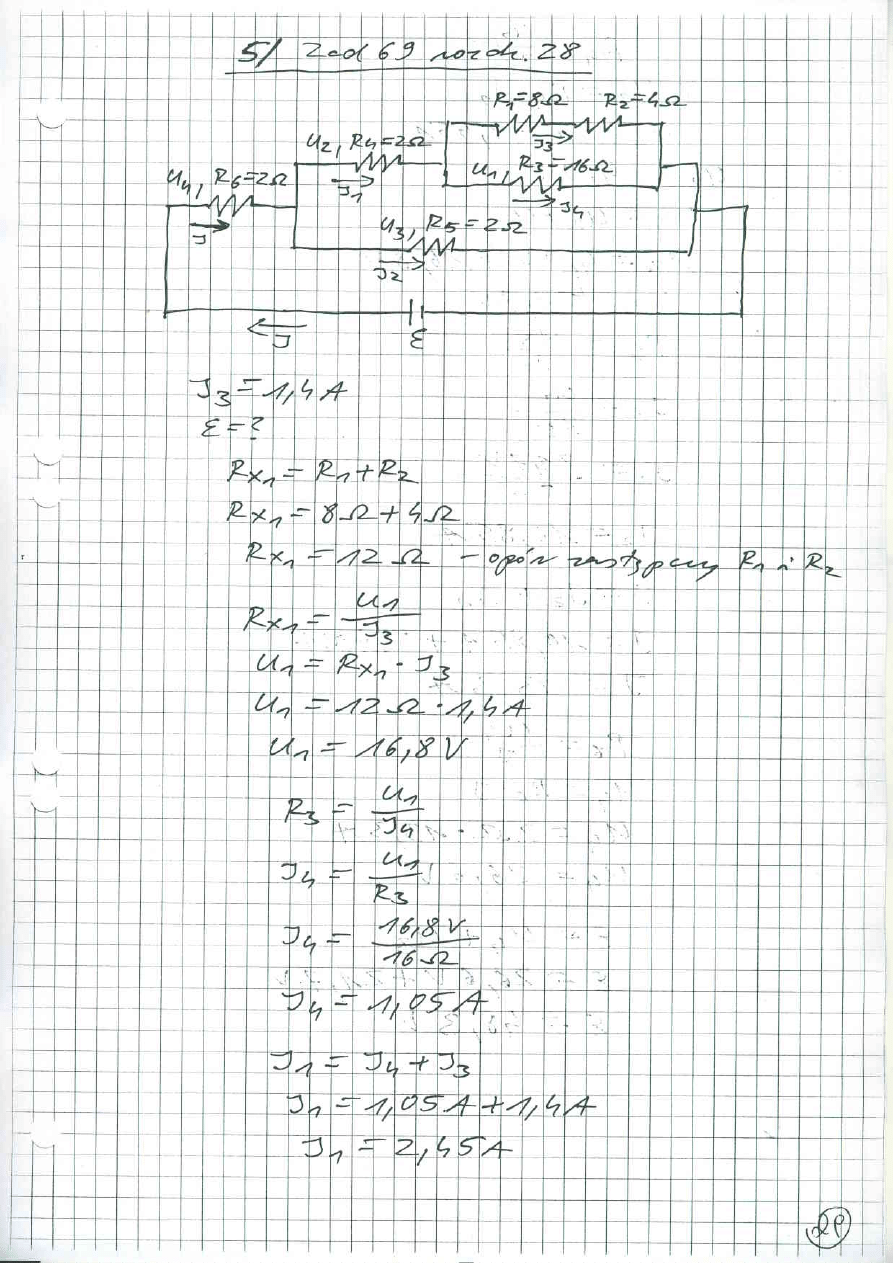 5/ Zad 69 rozdz. 28
R1=8Ω R2=4Ω
J3
U2, R4=2Ω
J1
U1, R3=16Ω
J4
U4, R6=2Ω
J
U3, R5=2Ω
J2
J
ε
J3 = 1,4A
ε = ?
Rx1 = R1 + R2
Rx1 = 8Ω + 4Ω
Rx1 = 12 Ω - opór zastępczy R1 i R2
Rx1 = U1/J3
U1 = Rx1 · J3
U1 = 12Ω · 1,4A
U1 = 16,8 V
R3 = U1/J4
J4 = U1/R3
J4 = 16,8V/16Ω
J4 = 1,05 A
J1 = J4 + J3
J1 = 1,05A + 1,4A
J1 = 2,45A